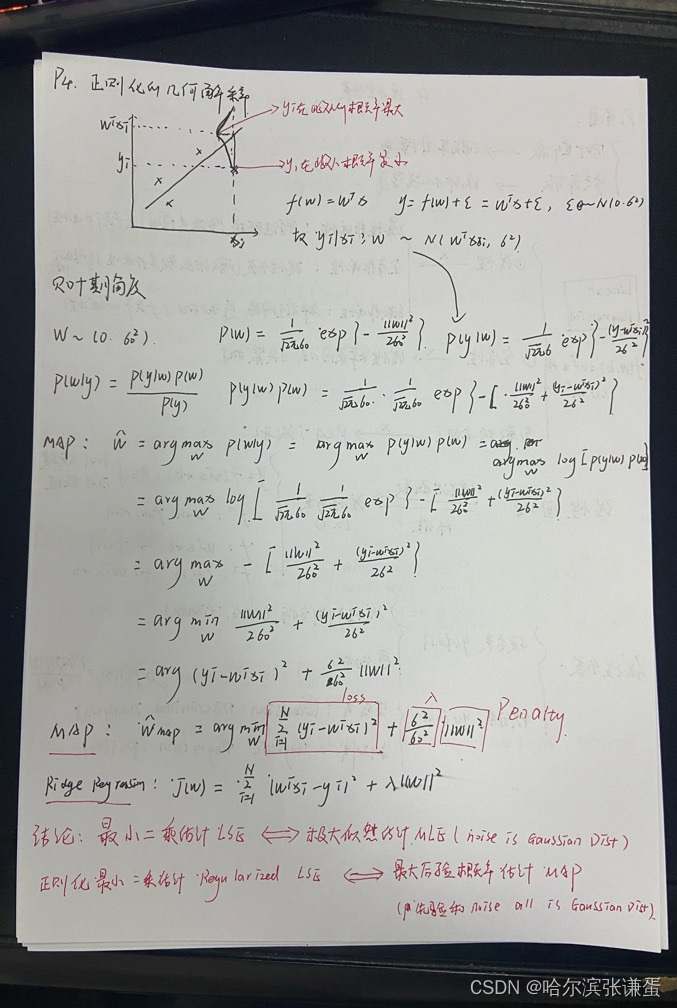 P4. 正则化的几何解释
wᵀxi
yi
xi
yi在此处的概率最大
yi在此处概率最小
f(w) = wᵀx   y = f(w) + ε = wᵀx + ε, ε ~ N(0. 6²)
故 yi|xi; w ~ N(wᵀxi, 6²)
贝叶斯角度
W ~ (0. 60²).   P(w) = 1/√2π60 · exp{ - ||w||²/260² }.   p(y|w) = 1/√2π6 exp{ - (y-wᵀxi)²/26² }
P(w|y) = P(y|w) P(w) / P(y)   p(y|w) p(w) = 1/√2π60 · 1/√2π60 exp} - [ ||w||²/260² + (yi-wᵀxi)²/26² }
MAP: ŵ = arg max w p(w|y) = arg max w p(y|w) p(w) = arg max w log [p(y|w) p(w)]
= arg max w log [ 1/√2π60 1/√2π60 exp } - [ ||w||²/260² + (yi-wᵀxi)²/26² }
= arg max w - [ ||w||²/260² + (yi-wᵀxi)²/26² }
= arg min w ||w||²/260² + (yi-wᵀxi)²/26²
= arg (yi-wᵀxi)² + 6²/60² ||w||²
loss   λ
MAP: ŵMAP = arg min w N Σ i=1 (yi-wᵀxi)² + 6²/60² ||w||²   Penalty.
Ridge Regression: J(w) = N Σ i=1 |wᵀxi-yi|² + λ||w||²
结论: 最小二乘估计 LSE ⟺ 极大似然估计 MLE (noise is Gaussian Dist)
正则化最小二乘估计 Regularized LSE ⟺ 最大后验概率估计 MAP
先验和 noise all is Gaussian Dist).
CSDN @哈尔滨张谦蛋